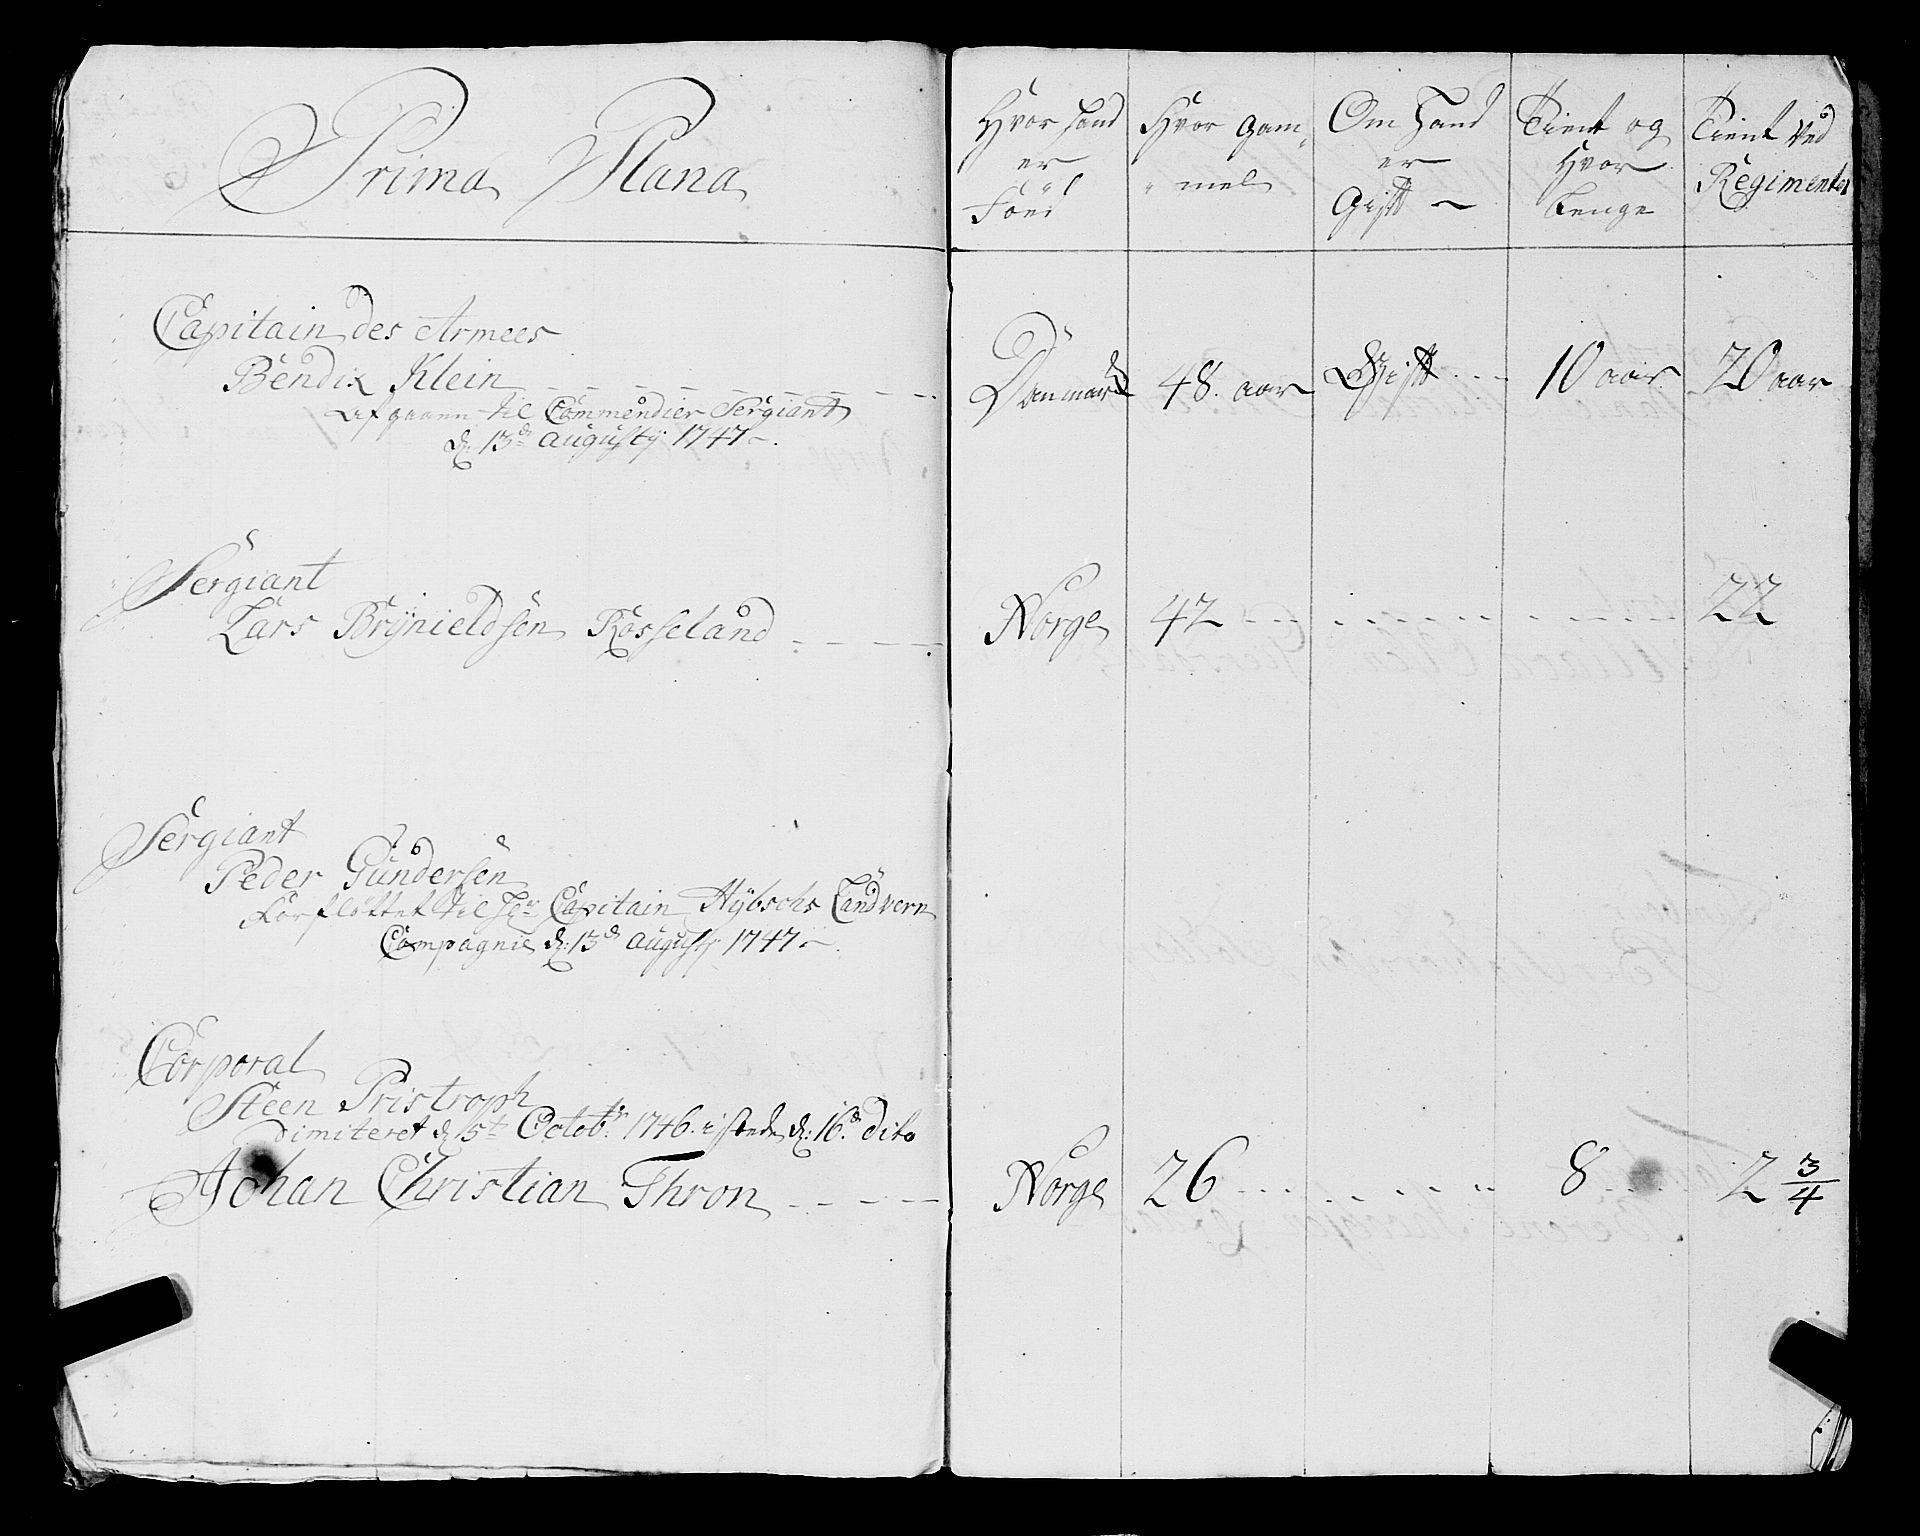 Prima Plana
Capitain des Armees
Bendix Klein
afgaaen til Commendier Sergiant
d: 13de augusty 1747
Sergiant
Lars Brÿnieldsen Rosseland
Sergiant
Peder Gundersen
Forfløttet til Hr Capitain Hÿbschs Landvern
Compagnie d: 13d augusty 1747
Corporal
Steen Pristroph
Dimiteret d 5t Octobr 1746. i steden d: 16d dito
Johan Christian Thron
Hvor hand
er
Föed
Hvor gam
mel
Om Hand
er
Gift
Tient og
Hvor
Lenge
Tient Ved
Regimentet
Danmarck 48. aar Gift 10 aar 20 aar
Norge 42 22
Norge 26 8 2 3/4